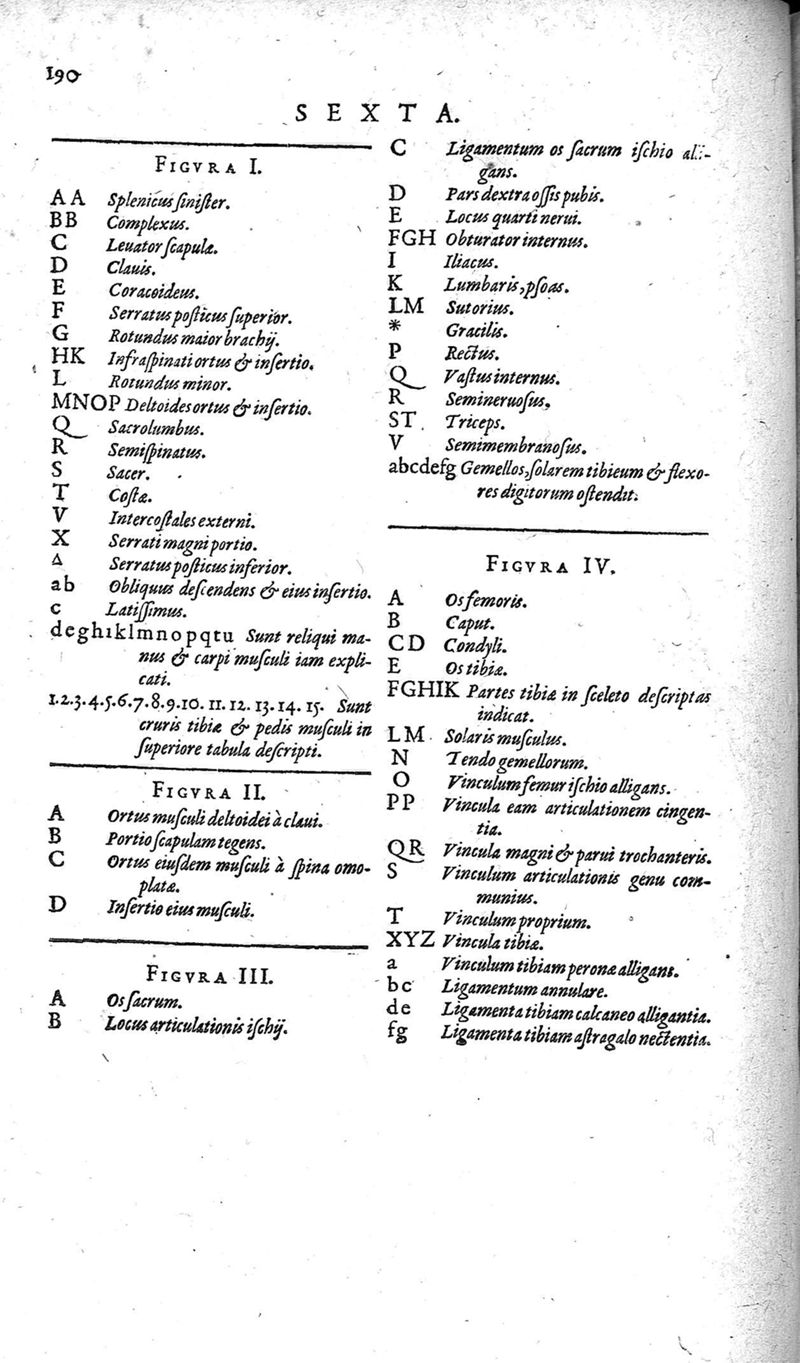 190
SEXTA.
FIGVRA I.
AA Splenicus ſiniſter.
BB Complexus.
C Leuator ſcapulæ.
D Clauis.
E Coracoideus.
F Serratus poſticus ſuperior.
G Rotundus maior brachij.
HK Infraſpinati ortus & inſertio.
L Rotundus minor.
MNOP Deltoides ortus & inſertio.
Q Sacrolumbus.
R Semiſpinatus.
S Sacer.
T Coſtæ.
V Intercoſtales externi.
X Serrati magni portio.
Δ Serratus poſticus inferior.
ab Obliquus deſcendens & eius inſertio.
c Latiſſimus.
deghiklmnopqtu Sunt reliqui ma-
nus & carpi muſculi iam expli-
cati.
1.2.3.4.5.6.7.8.9.10.11.12.13.14.15. Sunt
cruris tibiæ & pedis muſculi in
ſuperiore tabula deſcripti.
FIGVRA II.
A Ortus muſculi deltoidei à claui.
B Portio ſcapulam tegens.
C Ortus eiuſdem muſculi à ſpina omo-
platæ.
D Inſertio eius muſculi.
FIGVRA III.
A Os ſacrum.
B Locus articulationis iſchij.
C Ligamentum os ſacrum iſchio alli-
gans.
D Pars dextra oſſis pubis.
E Locus quarti nerui.
FGH Obturator internus.
I Iliacus.
K Lumbaris, pſoas.
LM Sutorius.
* Gracilis.
P Rectus.
Q Vaſtus internus.
R Semineruoſus.
ST. Triceps.
V Semimembranoſus.
abcdefg Gemellos, ſolarem tibieum & flexo-
res digitorum oſtendit.
FIGVRA IV.
A Os femoris.
B Caput.
CD Condyli.
E Os tibiæ.
FGHIK Partes tibiæ in ſceleto deſcriptas
indicat.
LM Solaris muſculus.
N Tendo gemellorum.
O Vinculum femur iſchio alligans.
PP Vincula eam articulationem cingen-
tia.
QR Vincula magni & parui trochanteris.
S Vinculum articulationis genu com-
munius.
T Vinculum proprium.
XYZ Vincula tibiæ.
a Vinculum tibiam peronæ alligans.
bc Ligamentum annulare.
de Ligamenta tibiam calcaneo alligantia.
fg Ligamenta tibiam aſtragalo nectentia.